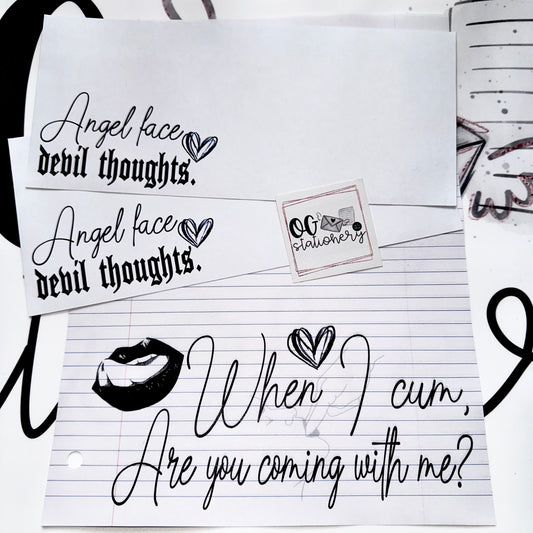 Angel face
devil thoughts.
Angel face
devil thoughts.
OG
stationery
When I cum,
Are you coming with me?